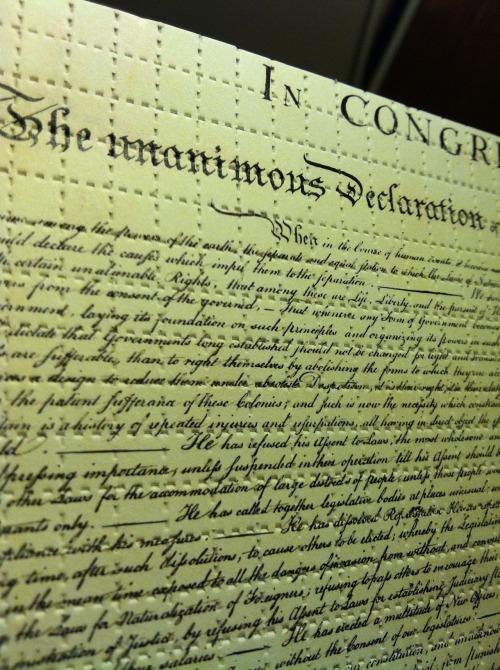 IN CONGR
The unanimous Declaration of
When in the Course of human events it
among the powers of the earth, the separate and equal station to which the Laws of
declare the causes which impel them to the separation. We
certain unalienable Rights, that among these are Life, Liberty and the pursuit of
from the consent of the governed, — That whenever any Form of Government
laying its foundation on such principles and organizing its powers in such
dictate that Governments long established should not be changed for light and
are sufferable, than to right themselves by abolishing the forms to which they are
a design to reduce them under absolute Despotism, it is their right, it is their
the patient sufferance of these Colonies; and such is now the necessity which
is a history of repeated injuries and usurpations, all having in direct object the
He has refused his Assent to Laws, the most wholesome
pressing importance, unless suspended in their operation till his Assent should
other Laws for the accommodation of large districts of people, unless those people
only. He has called together legislative bodies at places unusual,
with his measures. He has dissolved
time, after such dissolutions, to cause others to be elected; whereby the Legislative
in the mean time exposed to all the dangers of invasion from without, and
the Laws for Naturalization of Foreigners; refusing to pass others to encourage their
of Justice, by refusing his Assent to Laws for establishing Judiciary
salaries. He has erected a multitude of New Offices,
without the Consent of our legislatures.
our constitution, and